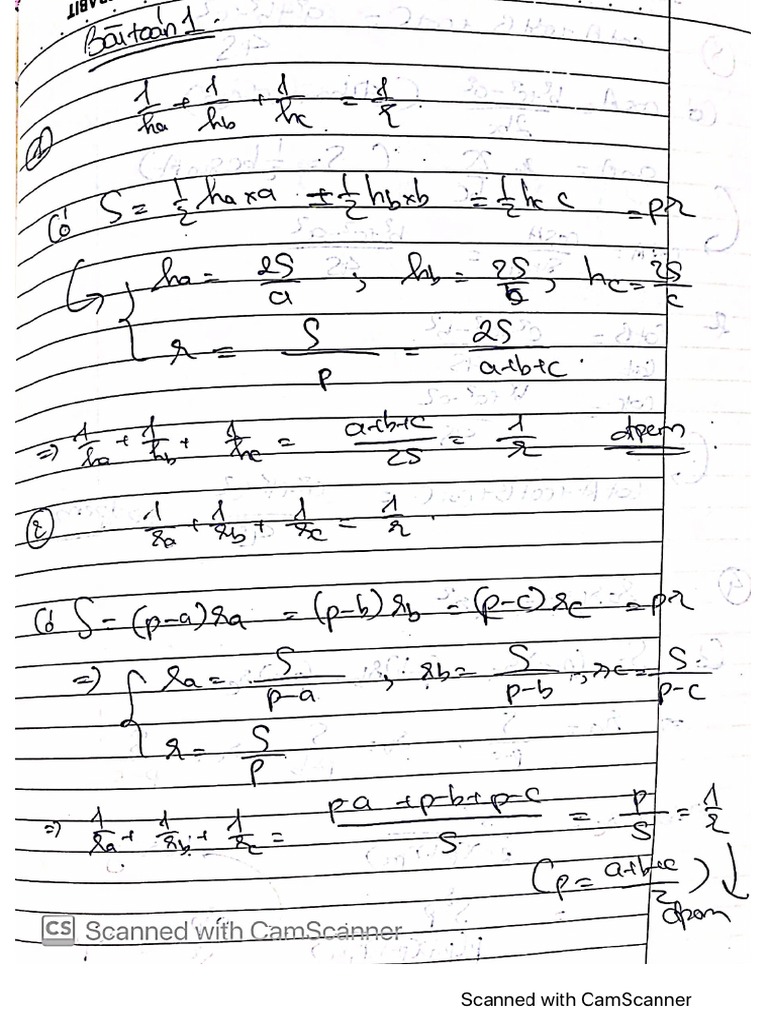 Bài toán 1.
① 1/ha + 1/hb + 1/hc = 1/r
Có S = 1/2 ha×a = 1/2 hb×b = 1/2 hc c = pr
↳ { ha = 2S/a ; hb = 2S/b ; hc = 2S/c
r = S/p = 2S/(a+b+c).
⇒ 1/ha + 1/hb + 1/hc = (a+b+c)/2S = 1/r đpcm
② 1/ra + 1/rb + 1/rc = 1/r.
Có S = (p-a)ra = (p-b)rb = (p-c)rc = pr
⇒ { ra = S/(p-a) , rb = S/(p-b) , rc = S/(p-c)
r = S/p
⇒ 1/ra + 1/rb + 1/rc = (p-a+p-b+p-c)/S = p/S = 1/r
(p = (a+b+c)/2) ↓
đpcm
CS Scanned with CamScanner
Scanned with CamScanner